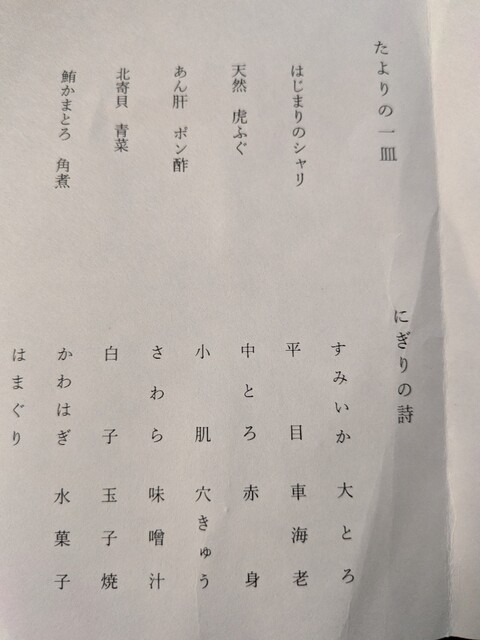 たよりの一皿
はじまりのシャリ
天然 虎ふぐ
あん肝 ポン酢
北寄貝 青菜
鮪かまとろ 角煮
にぎりの詩
すみいか
平目
中とろ
小肌
さわら
白子
かわはぎ
はまぐり
大とろ
車海老
赤身
穴きゅう
味噌汁
玉子焼
水菓子